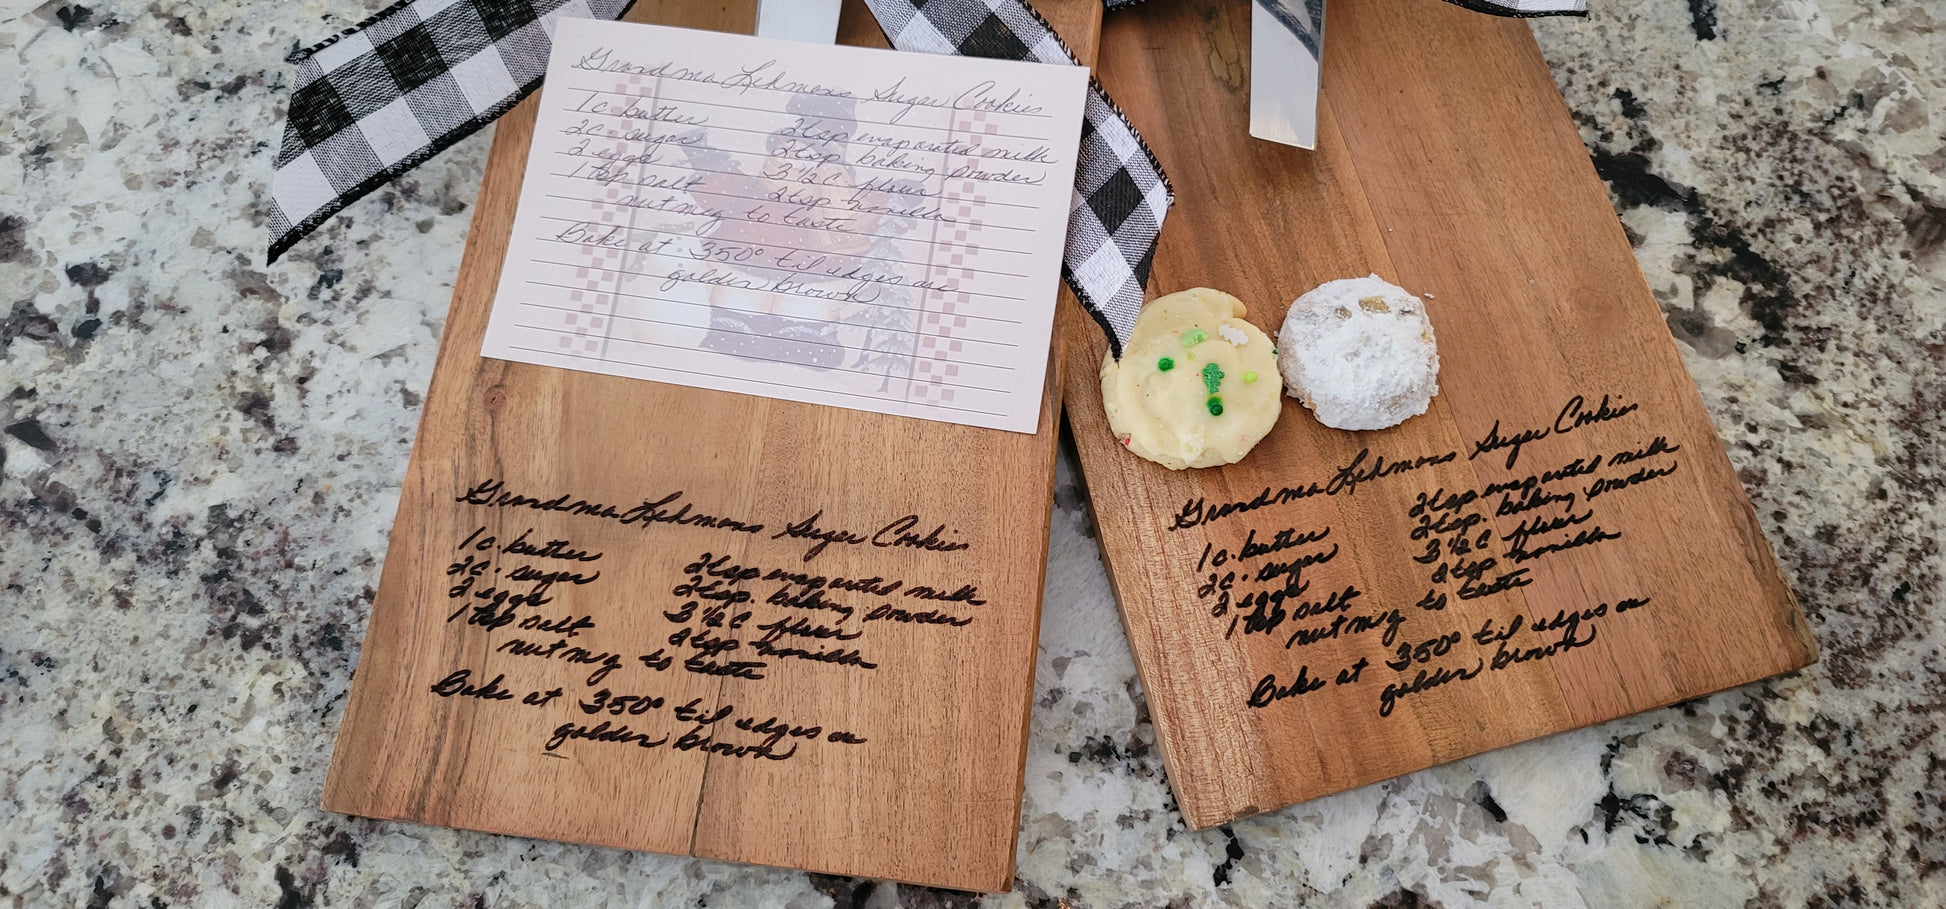 Grandma Lehmans Sugar Cookies
1 c. butter 2 tsp evaporated milk
2 c. sugar 2 tsp baking powder
2 eggs 3 1/2 c flour
1 tsp salt 2 tsp vanilla
nutmeg to taste
Bake at 350° til edges are
golden brown
Grandma Lehmans Sugar Cookies
1 c. butter 2 tsp evaporated milk
2 c. sugar 2 tsp. baking powder
2 eggs 3 1/2 c flour
1 tsp salt 2 tsp vanilla
nutmeg to taste
Bake at 350° til edges are
golden brown
Grandma Lehmans Sugar Cookies
1 c. butter 2 tsp evaporated milk
2 c. sugar 2 tsp. baking powder
2 eggs 3 1/2 c flour
1 tsp salt 2 tsp vanilla
nutmeg to taste
Bake at 350° til edges are
golden brown